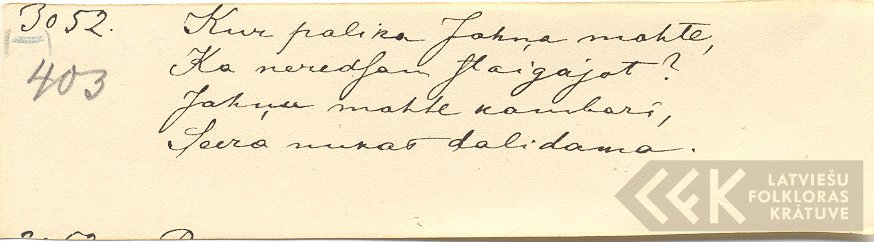 3052.
(—)
403
Kur palika Jahņa mahte,
Ka neredsam staigájot?
Jahņu mahte kambarí,
Seera mukas dalidama.
LATVIEŠU
FOLKLORAS
KRĀTUVE